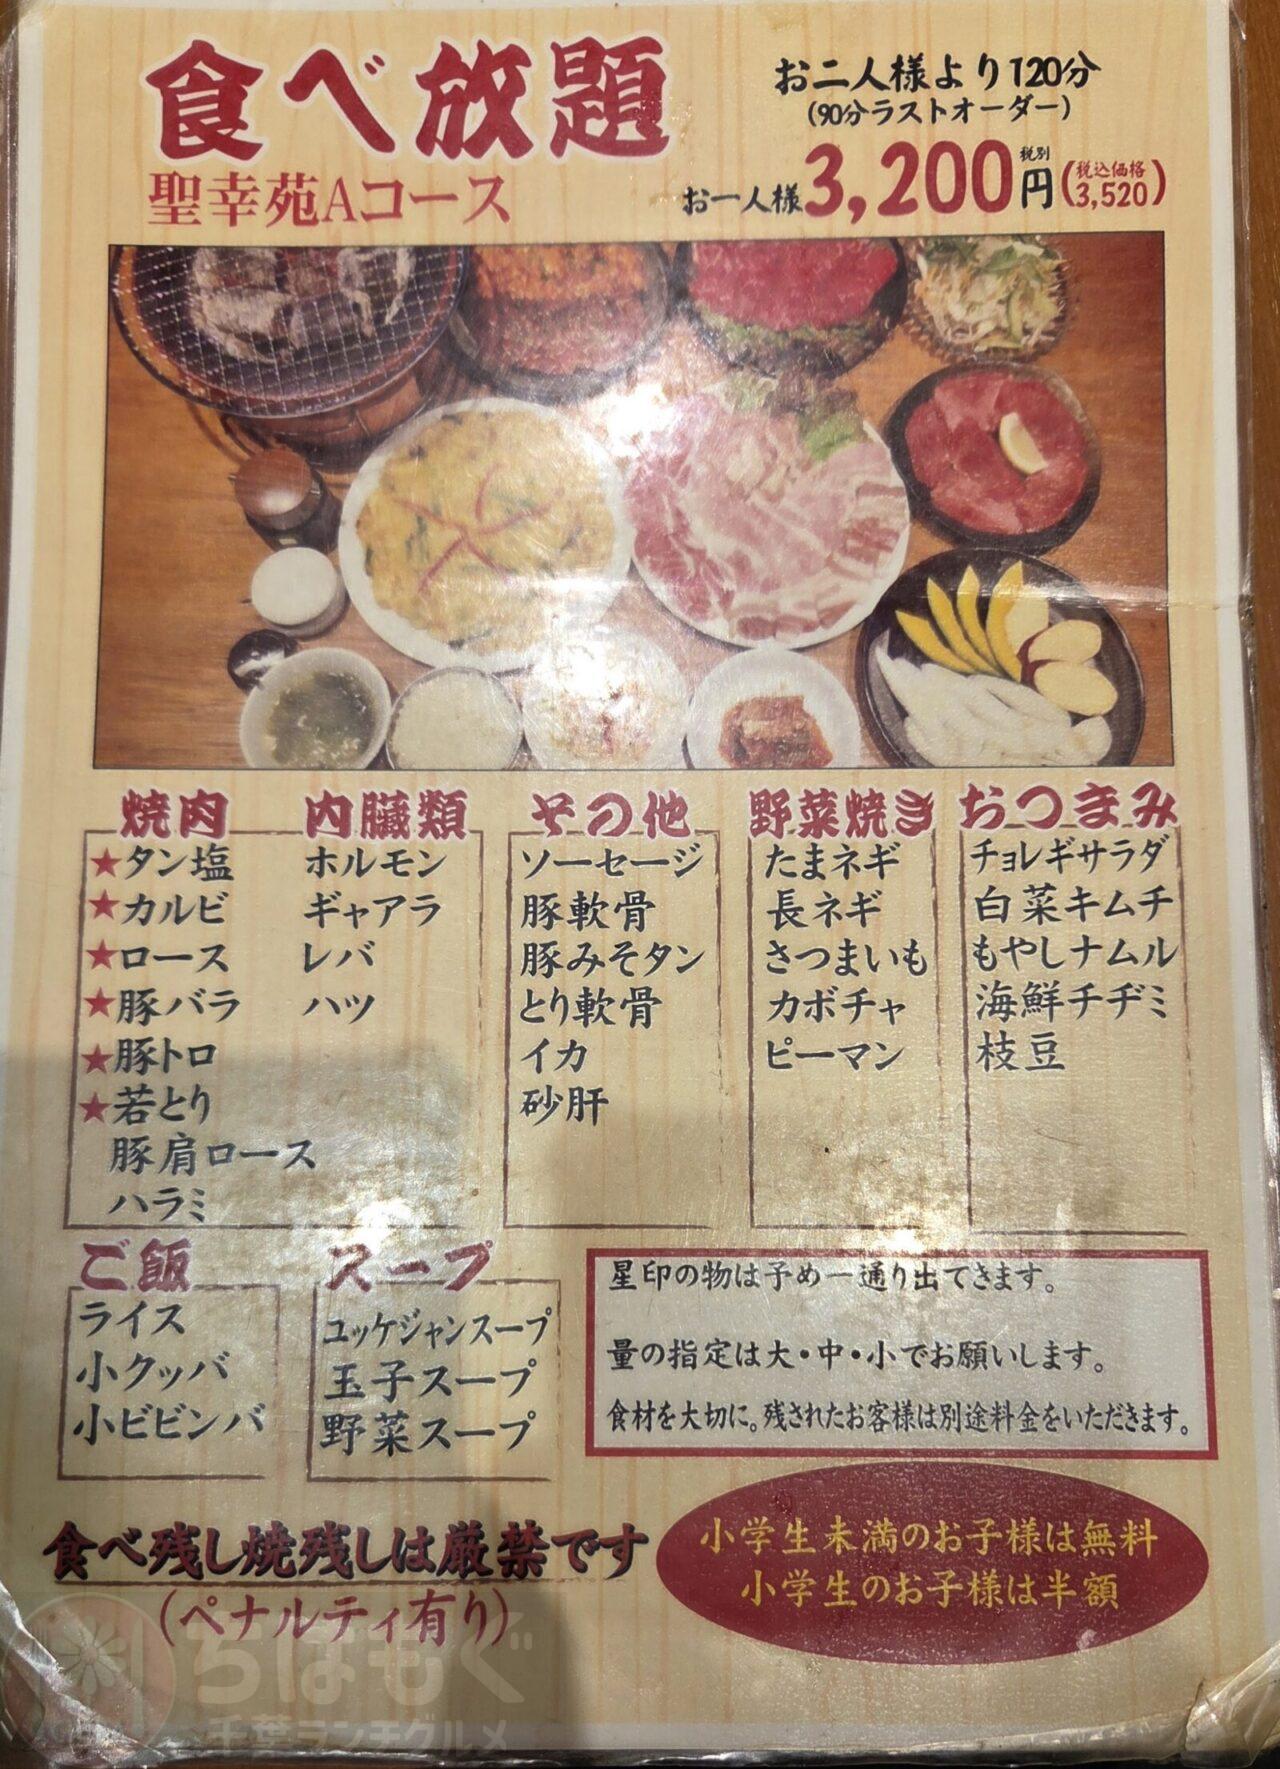 食べ放題
お二人様より120分
(90分ラストオーダー)
聖幸苑Aコース
お一人様3,200円 税別 (税込価格 3,520)
焼肉
★タン塩
★カルビ
★ロース
★豚バラ
★豚トロ
★若とり
豚肩ロース
ハラミ
内臓類
ホルモン
ギャアラ
レバ
ハツ
その他
ソーセージ
豚軟骨
豚みそタン
とり軟骨
イカ
砂肝
野菜焼き
たまネギ
長ネギ
さつまいも
カボチャ
ピーマン
おつまみ
チョレギサラダ
白菜キムチ
もやしナムル
海鮮チヂミ
枝豆
ご飯
ライス
小クッパ
小ビビンバ
スープ
ユッケジャンスープ
玉子スープ
野菜スープ
星印の物は予め一通り出てきます。
量の指定は大・中・小でお願いします。
食材を大切に。残されたお客様は別途料金をいただきます。
食べ残し焼残しは厳禁です
(ペナルティ有り)
小学生未満のお子様は無料
小学生のお子様は半額
ちばもぐ
千葉ランチグルメ